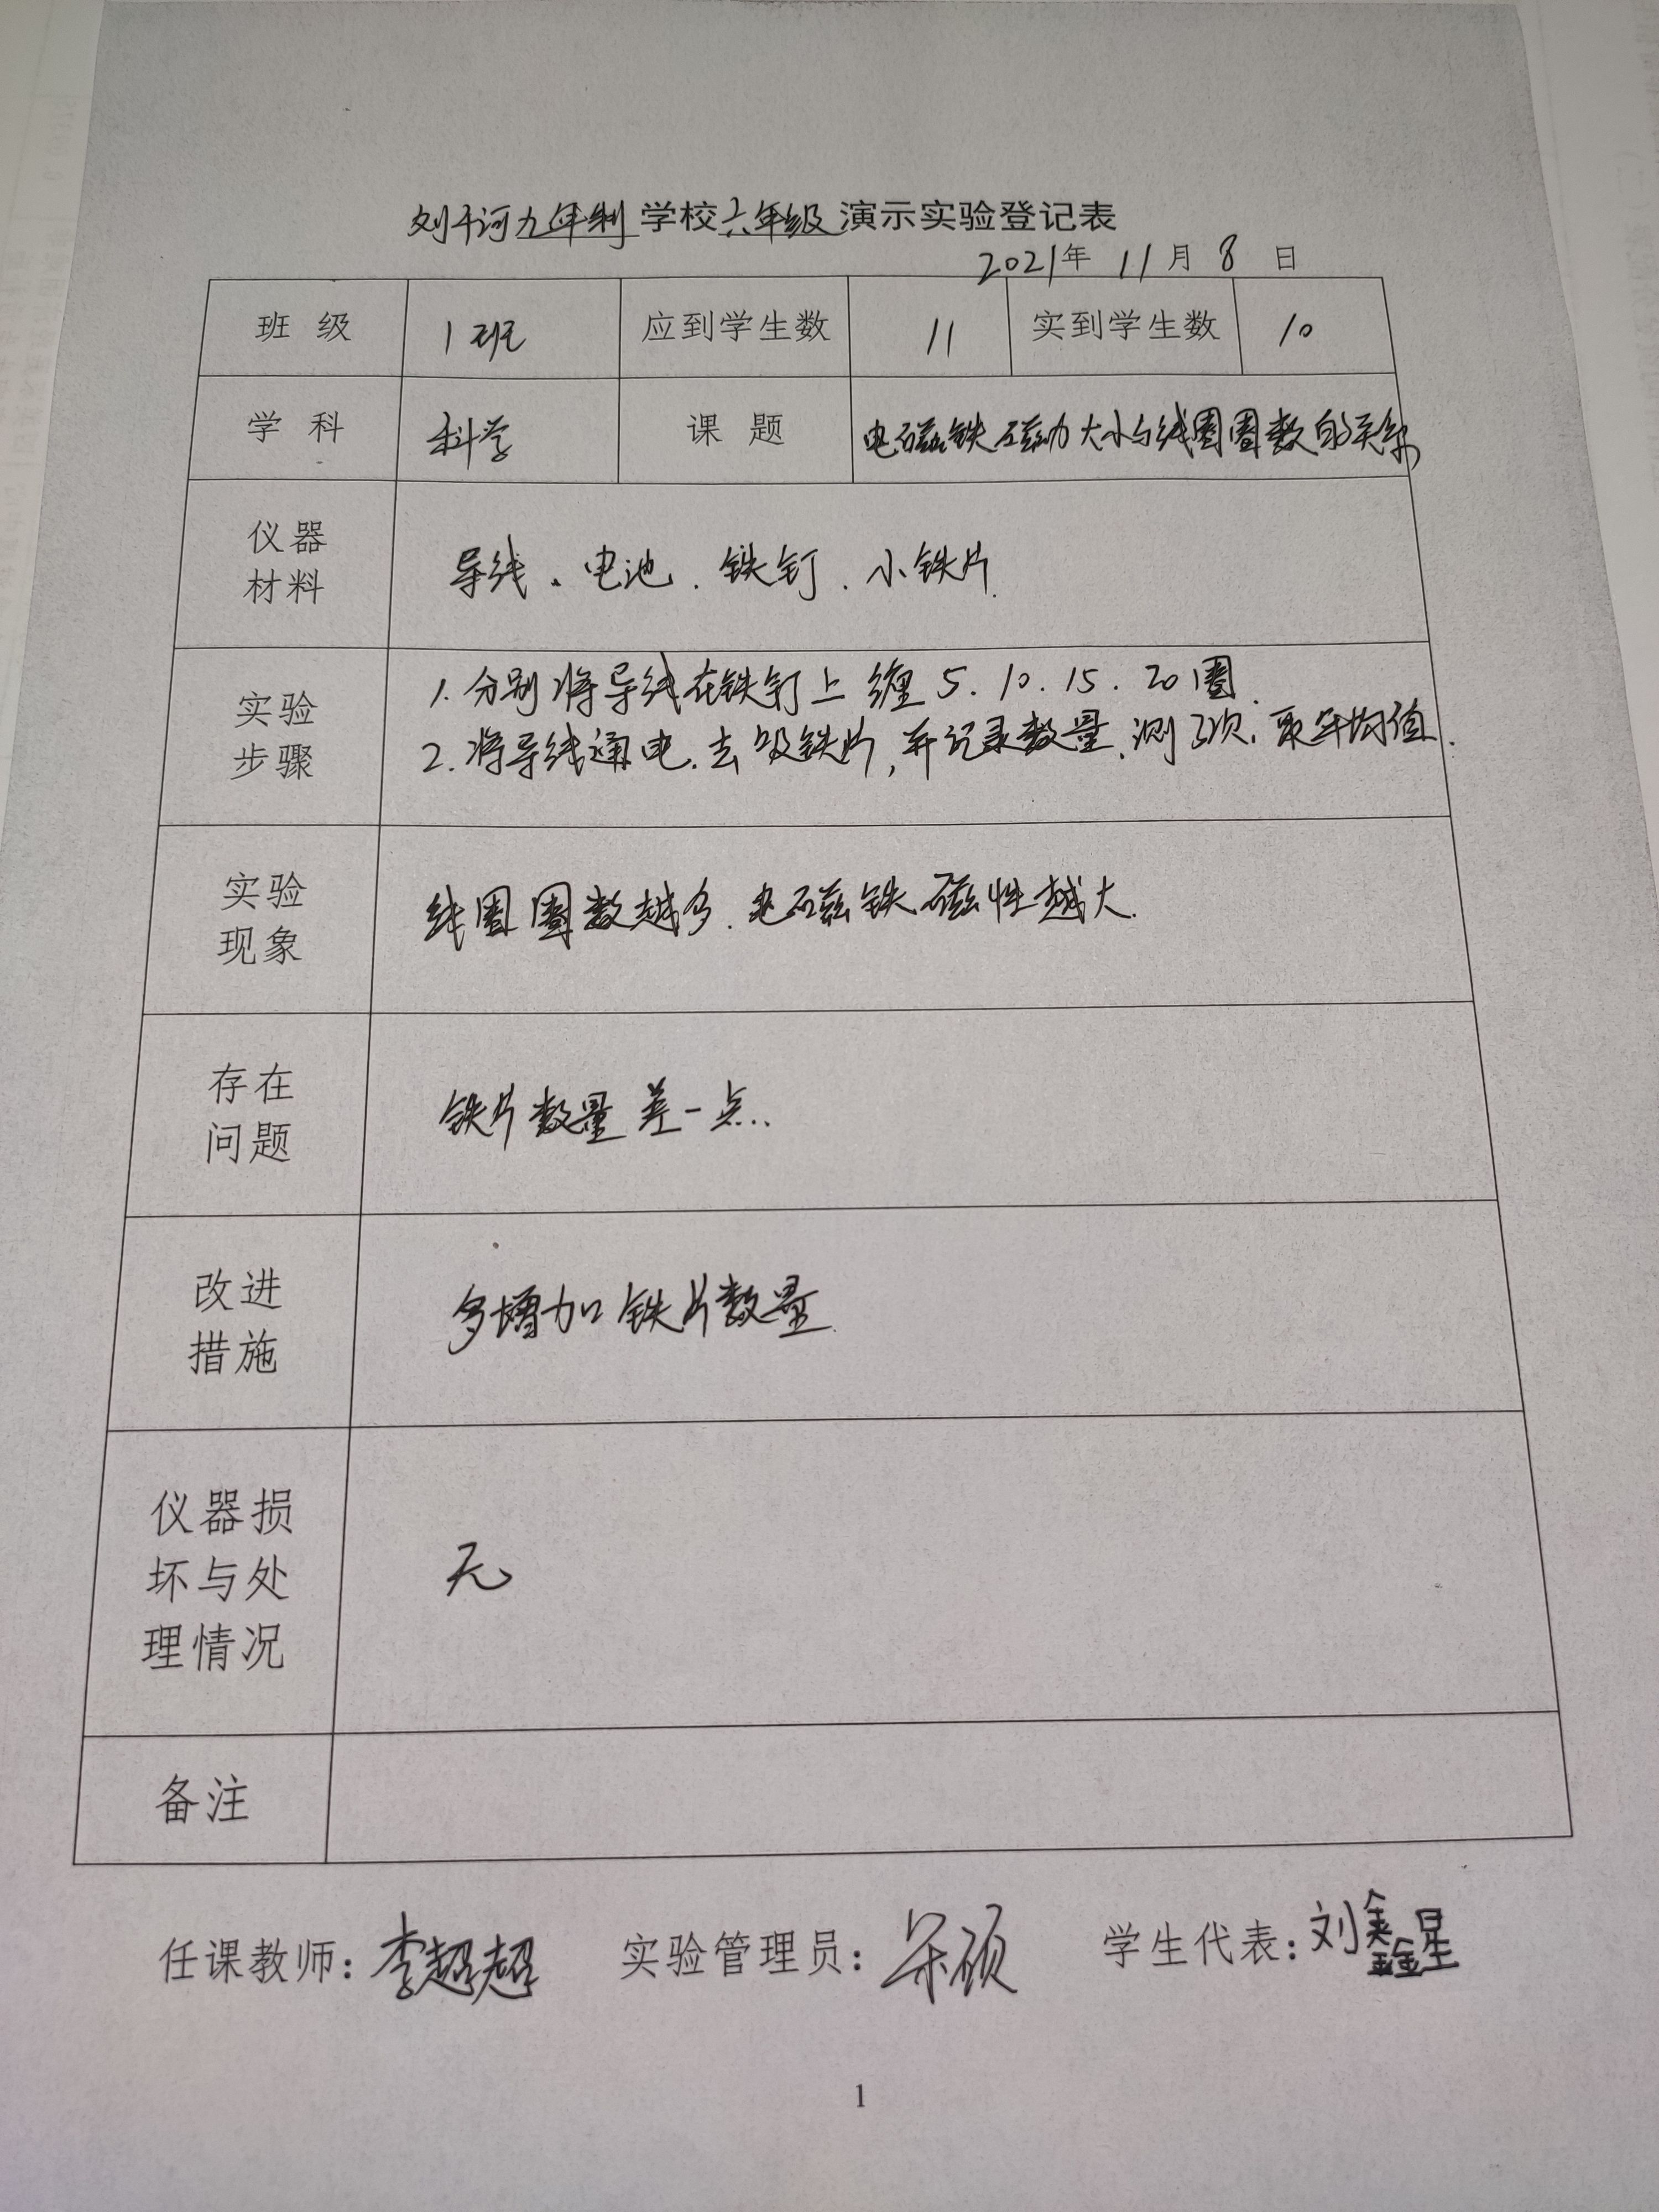 刘干河九年制学校六年级演示实验登记表
2021年 11月 8日
班 级 1班 应到学生数 11 实到学生数 10
学 科 科学 课 题 电磁铁磁力大小与线圈圈数的关系
仪器
材料
导线、电池、铁钉、小铁片.
实验
步骤
1. 分别将导线在铁钉上缠 5. 10. 15. 20圈.
2. 将导线通电.去吸铁片,并记录数量.测3次.取平均值.
实验
现象
线圈圈数越多.电磁铁磁性越大.
存在
问题
铁片数量差一点..
改进
措施
多增加铁片数量.
仪器损
坏与处
理情况
无
备注
任课教师:李超超 实验管理员: 硕 学生代表:刘鑫星
1